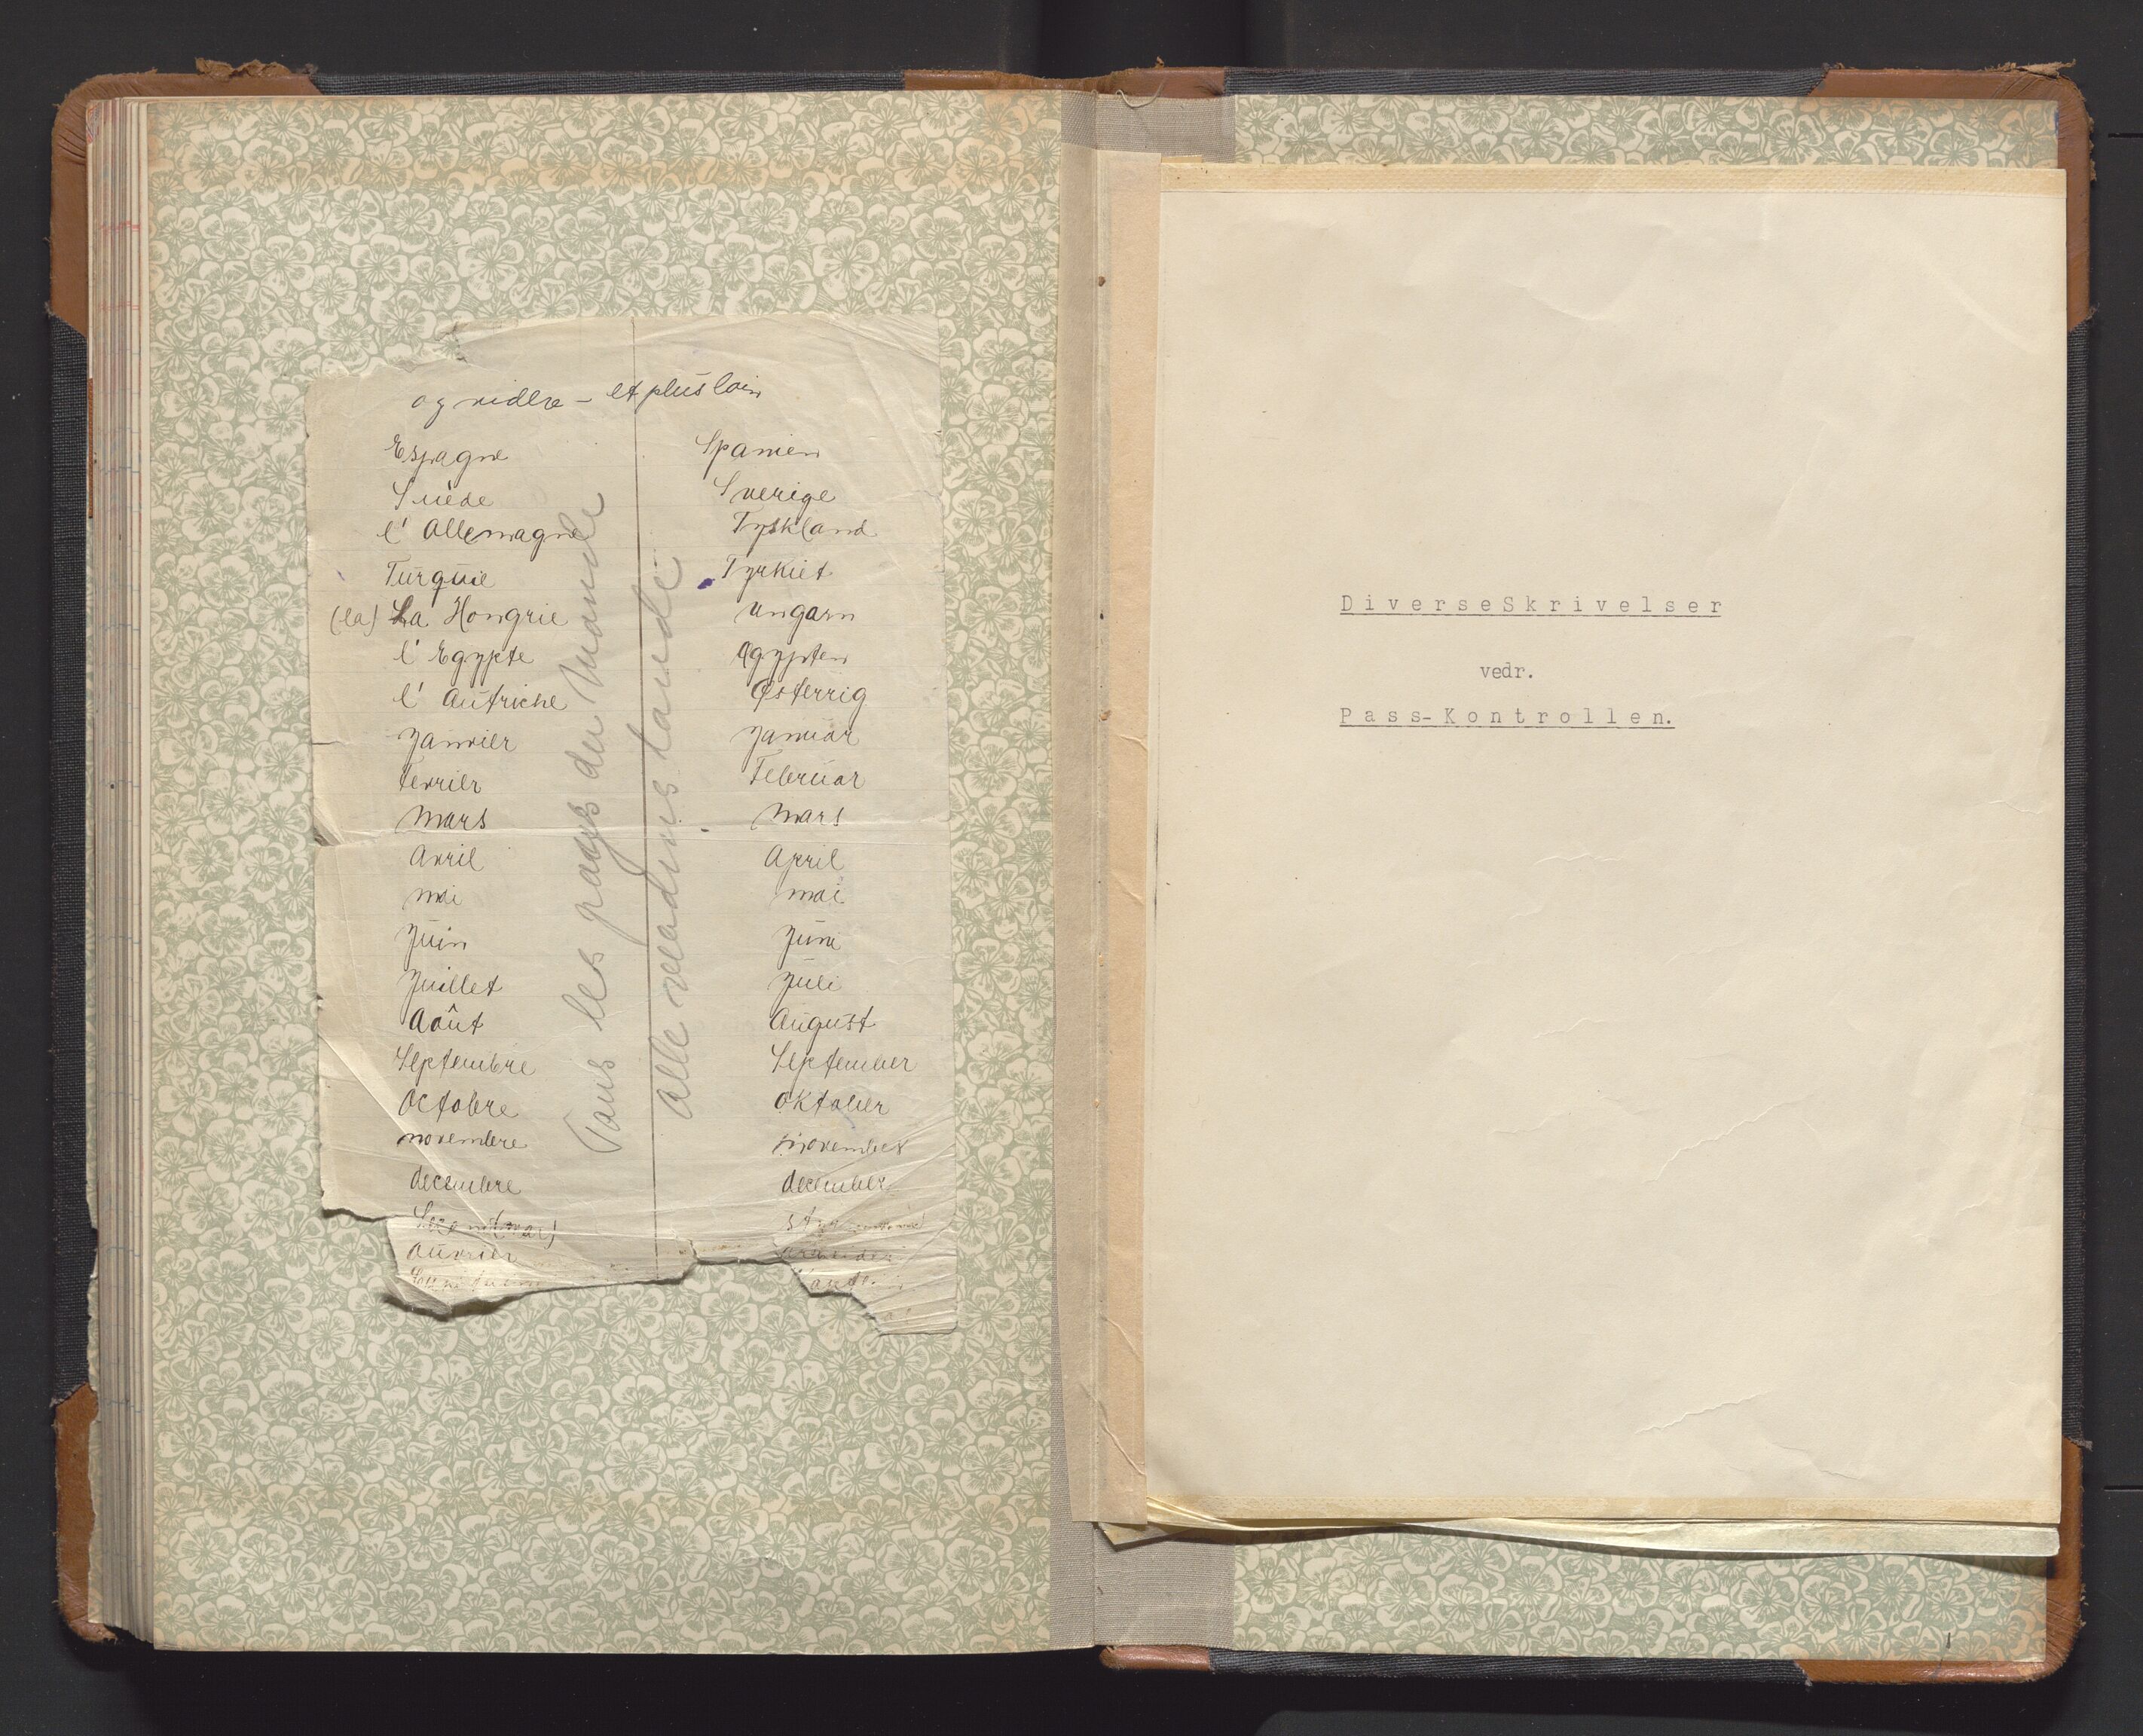 og videre – et plus loin
Espagne Spanien
Suède Sverige
l' Allemagne Tyskland
Turquie Tyrkiet
(la) La Hongrie Ungarn
l' Egypte Ægypten
l' Autriche Østerrig
Janvier Januar
Fevrier Februar
Mars Mars
Avril April
mai mai
Juin Juni
Juillet Juli
Août August
Septembre September
Octobre Oktober
novembre november
decembre december
ouvrier
Tous les pays du Monde
Alle verdens lande
DiverseSkrivelser
vedr.
Pass-Kontrollen.